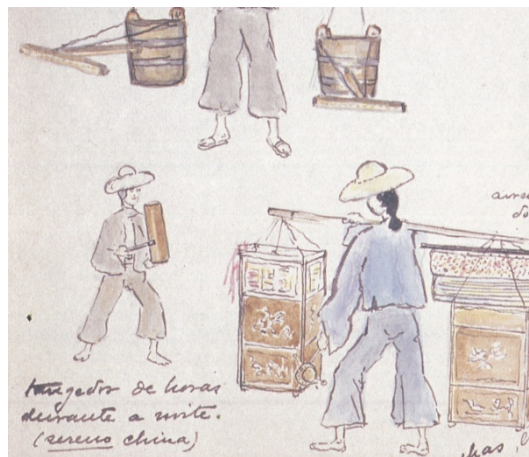 tangedor de horas
durante a noite.
(sereno china)